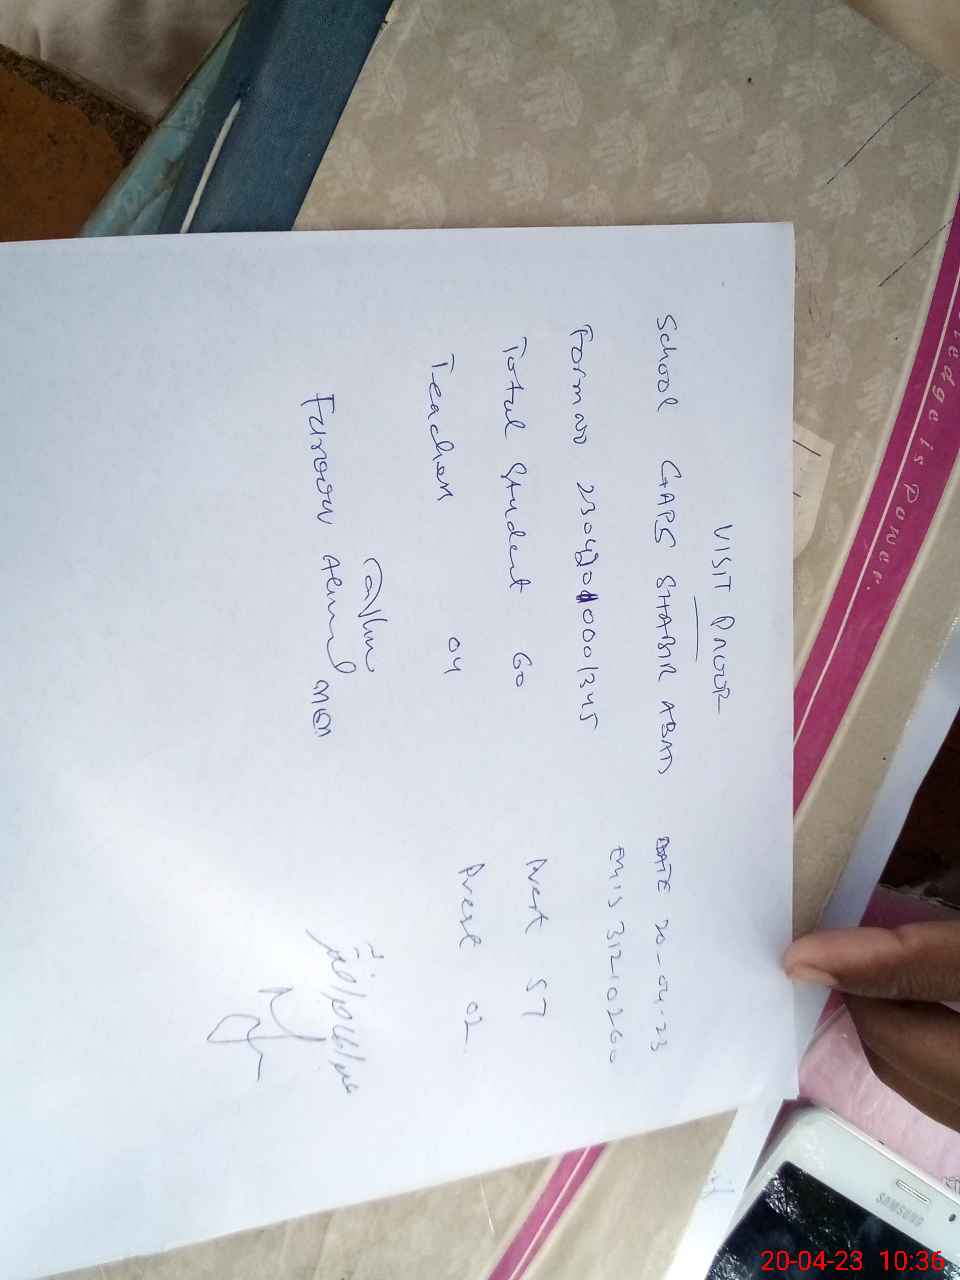 VISIT PROOF
School GAPS SHABIR ABAD DATE 20-04-23
Form no EMIS 31210260
Total Student 60 Prest 57
Teacher 04 Presel 02
Farooq Ahmed
Knowledge is Power.
SAMSUNG
20-04-23 10:36